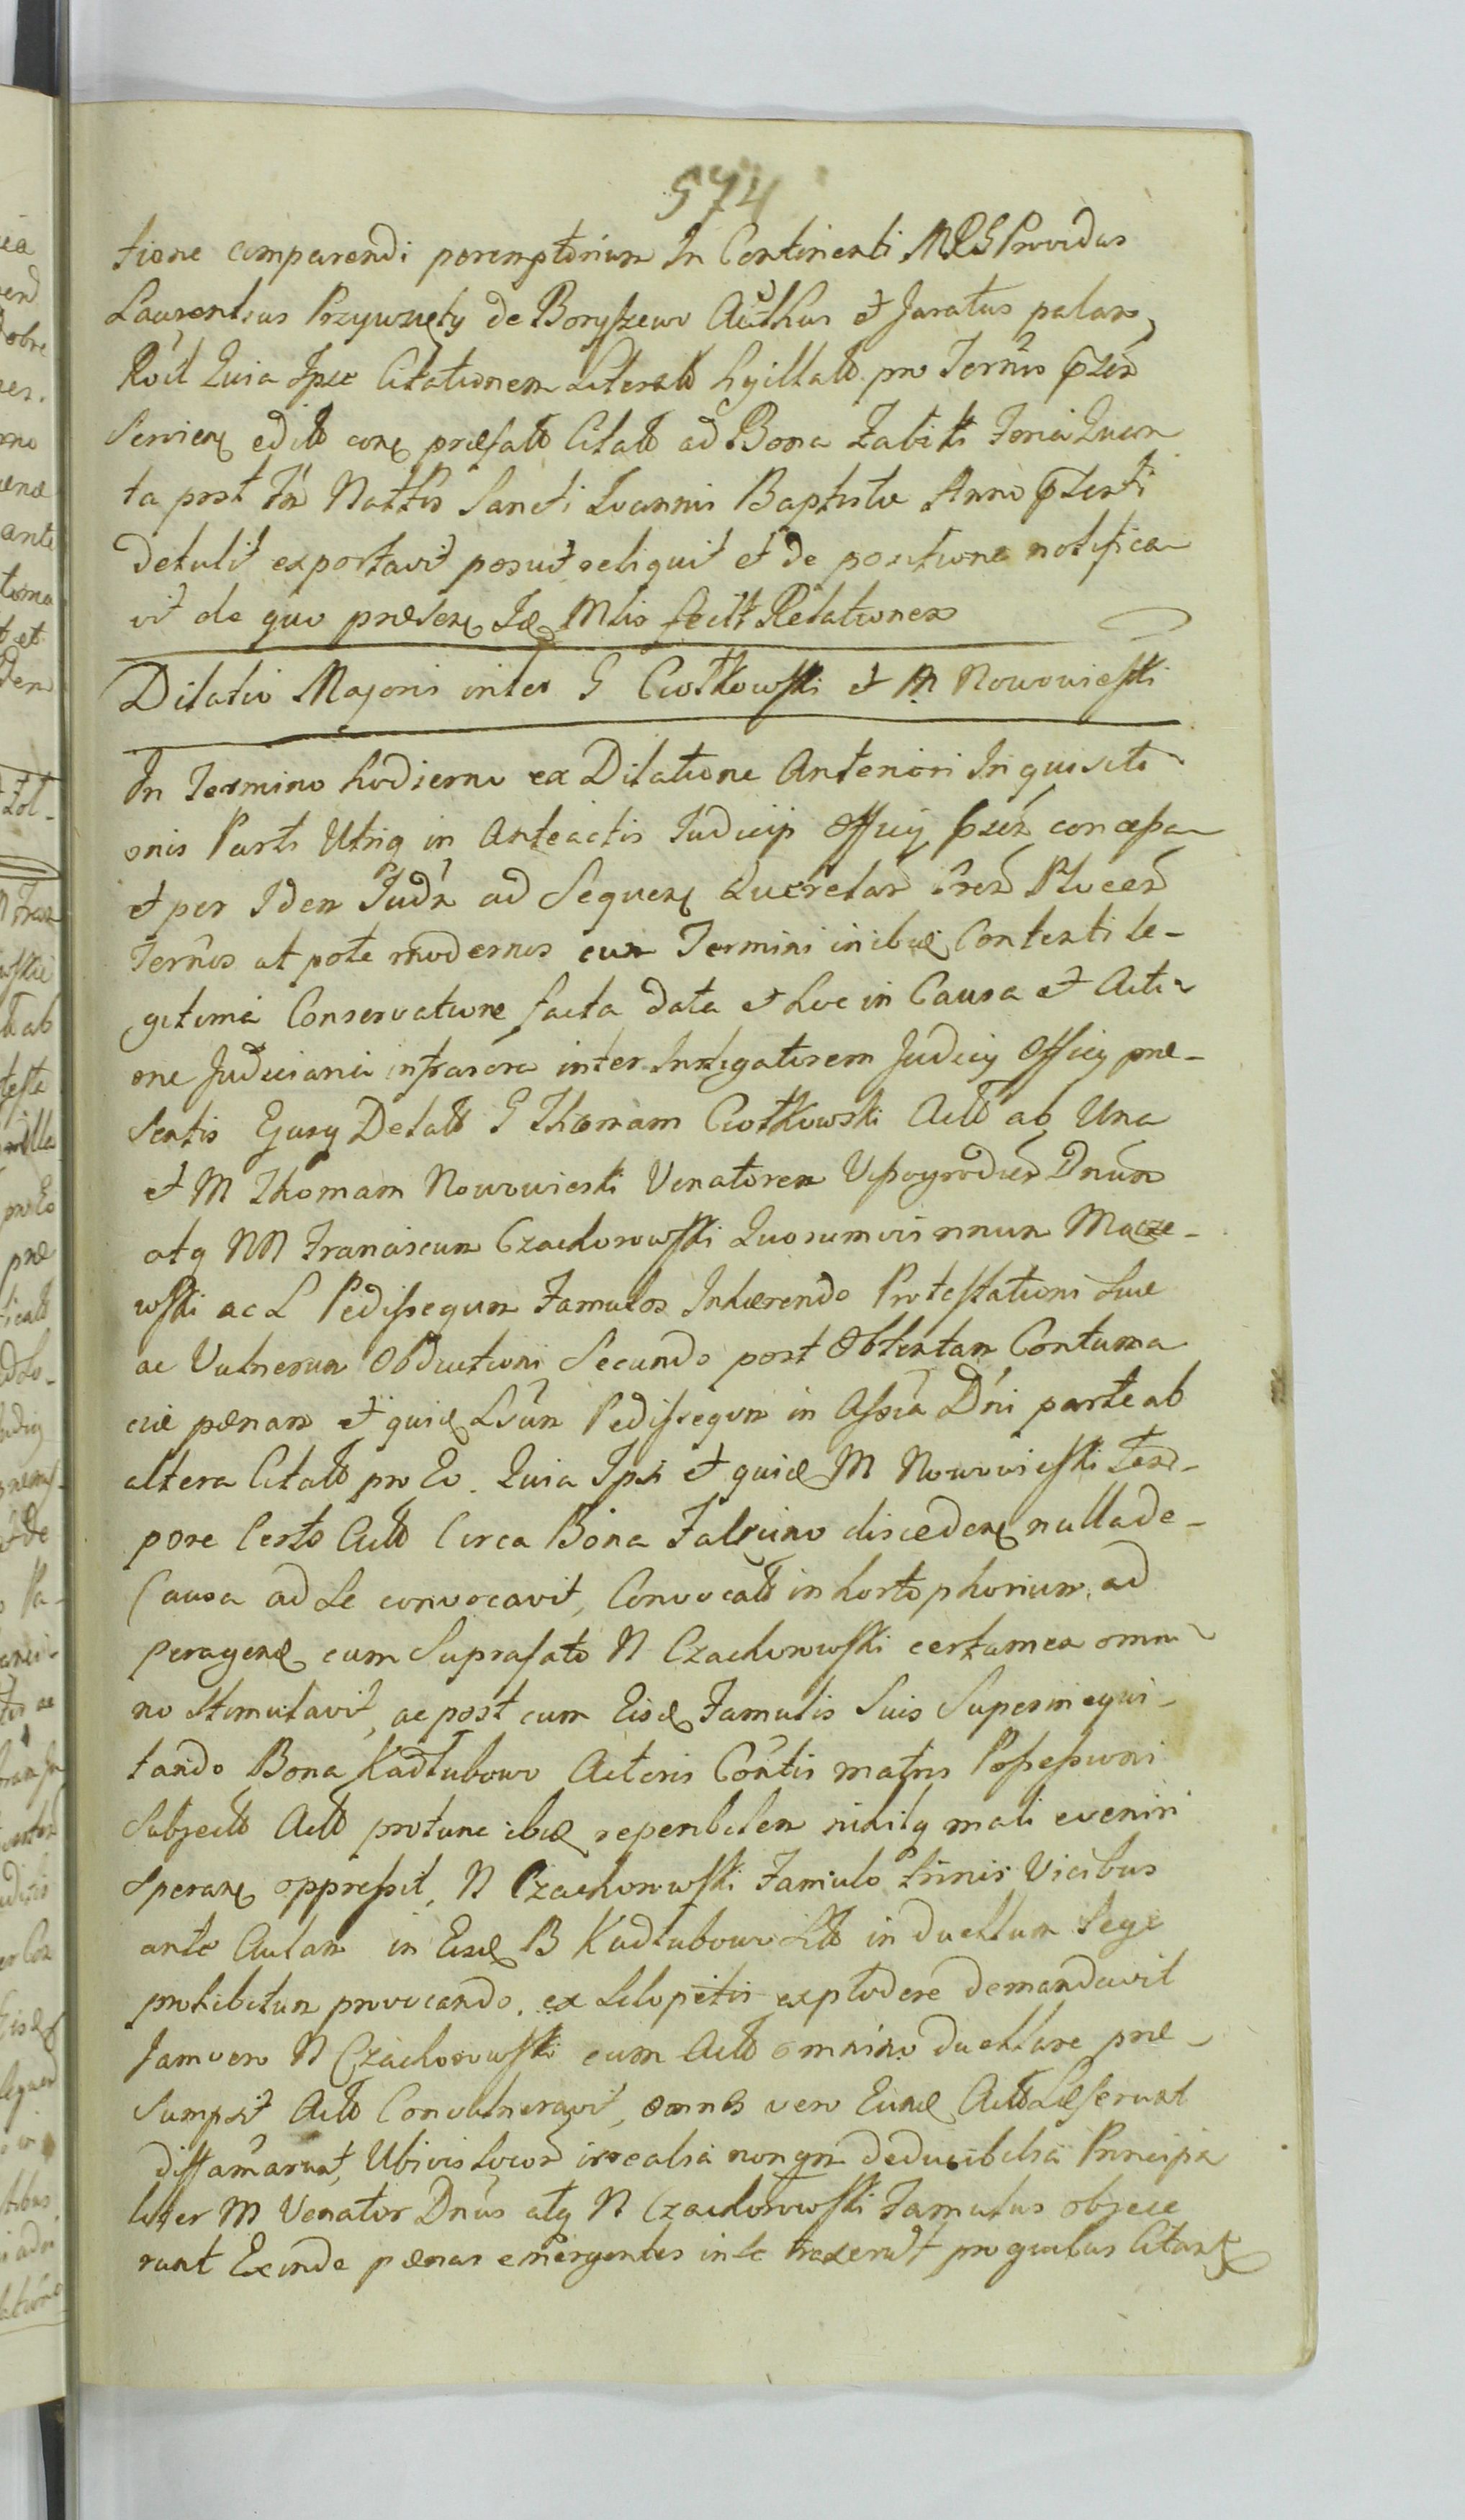 574
tione comparendi peremptorium In Continenti MRS Providus
Laurentius Przywuzięty de Boryszewo Authus et Juratus palam
Rcit Quia Ipse Citationem Literalt Sigillatt pro Termis pzen
Servien edit con præfatt Citatt ad Bona Zabiki Feria Quin
ta post Fm Nattis Sancti Ioannis Baptistæ Anno pzenti
detulit exportavit posuit reliquit et de positione notifica
vit de quo præsen Mtio fecit Relationem
Dilatio Majoris inter G Ciołkowski et M Nowowieski
In Termino hodierno ex Dilatione Anteriori Inquisiti
onis Parti Utriq in Anteactis Iudicij Officij pzen concessa
et per Iden Iudm ad Sequen Querelar Pren Plocen
Termos ut pote modernos cum Termini inibiq Contenti le-
gitima Conservatione facta data et hoc in Causa et Acti
one Judiciaria infrascra inter Instigatorem Judicij Officij præ-
sentis Ejusq Delatt G Thomam Ciołkowski Actt ab Una
et M Thomam Nowowieski Venatorem Wyszogrodien Dnum
atq NN Franciscum Czachorowski Quorumvis nnum Mącze-
wski ac L Pedissequm Famulos Inhærendo Protestationi Suæ
ac Vulnerum Obductioni Secundo post Obtentam Contuma
ciæ pænam et quidē Lsūm Pedissequm in Assia Dni parte ab
altera Citatt pro Eo. Quia Ipsi et quidē M Nowowieski Tem-
pore Certo Actt Circa Bona Falęcino disceden nulla de
Causa ad Se convocavit, Convocatt in hortophorium ad
peragend cum Suprafato N Czachorowski certamen omni
no Stimulavit, ac post cum Eisd Famulis Suis Superinequi-
tando Bona Kadłubowo Actoris Contis matris Possessioni
Subjectt Actt protunc ibid reperibilem nihilq mali eveniri
Speran oppressit, N Czachorowski Famulo trinis Vicibus
ante Aulam in Eisd B Kadłubowo Stt in duellum Lege
prohibitum provocando. ex Sclopetis explodere demandavit
Jamvero N Czachorowski cum Actt omnino duellare præ-
sumpsit Actt Convulneravit, omnes vero Eund Actt Læserunt
diffamarunt, Ubivis locor irrealia non gn deducibilia Principa
liter M Venator Dnus atq N Czachorowski Famulus objece
runt Exinde pænas emergentes in se traxerunt pro quibus Citant